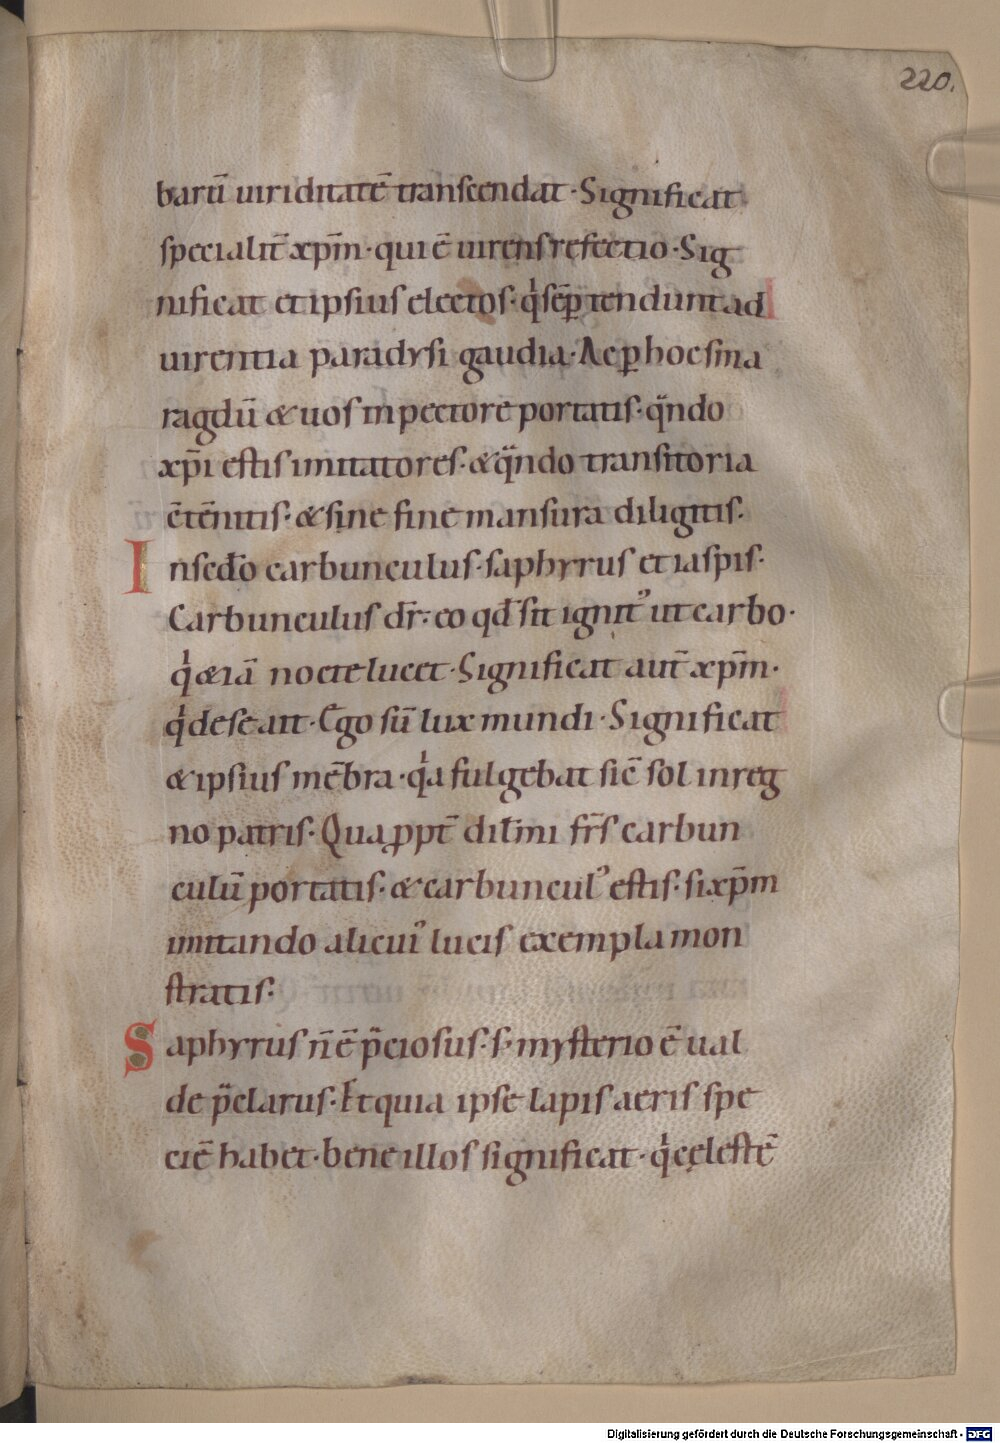 220.
barū uiriditatē transcendat · Significat
specialit̄ xp̄m · qui ē uirens refectio · Sig
nificat et ipsius electos · qͥ sēp tendunt ad
uirentia paradysi gaudia · Ac ꝑ hoc sma
ragdū & uos in pectore portatis · qͣndo
xp̄i estis imitatores · & qͣndo transitoria
c̄tēnitis · & sine fine mansura diligitis ·
Insedo carbunculus · saphyrus et iaspis ·
Carbunculus dr̄ · eo qđ sit ignitꝰ ut carbo ·
qͥ &iā nocte lucet · Significat aut̄ xp̄m ·
qͥ de se ait · Ego sū lux mundi · Significat
& ipsius mēbra · qͥa fulgebat sic̄ sol in reg
no patris · Quaꝓpt̄ dil̄mi fr̄s carbun
culū portatis · & carbunculꝰ estis · si xp̄m
imitando alicuiꝰ lucis exempla mon
stratis ·
Saphyrus n̄ ē p̄ciosus · s · mysterio ē ual
de p̄clarus · Et quia ipse lapis aeris spe
ciē habet · bene illos significat · qͥ cęlestē
Digitalisierung gefördert durch die Deutsche Forschungsgemeinschaft - DFG